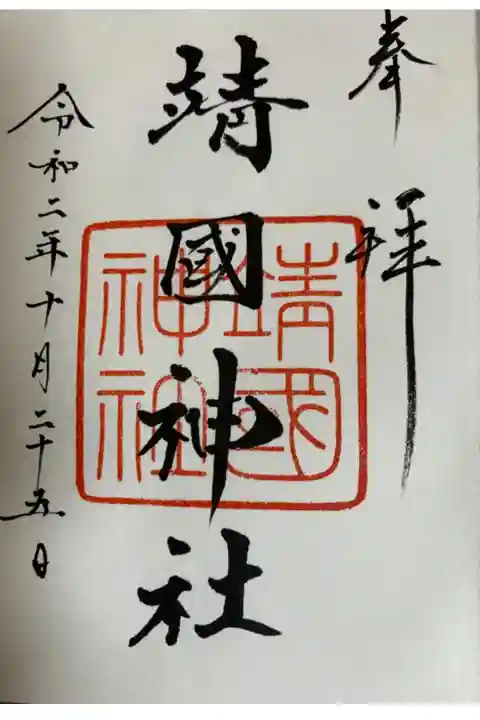 奉拝
靖國神社
靖国
神社
令和二年十月二十五日